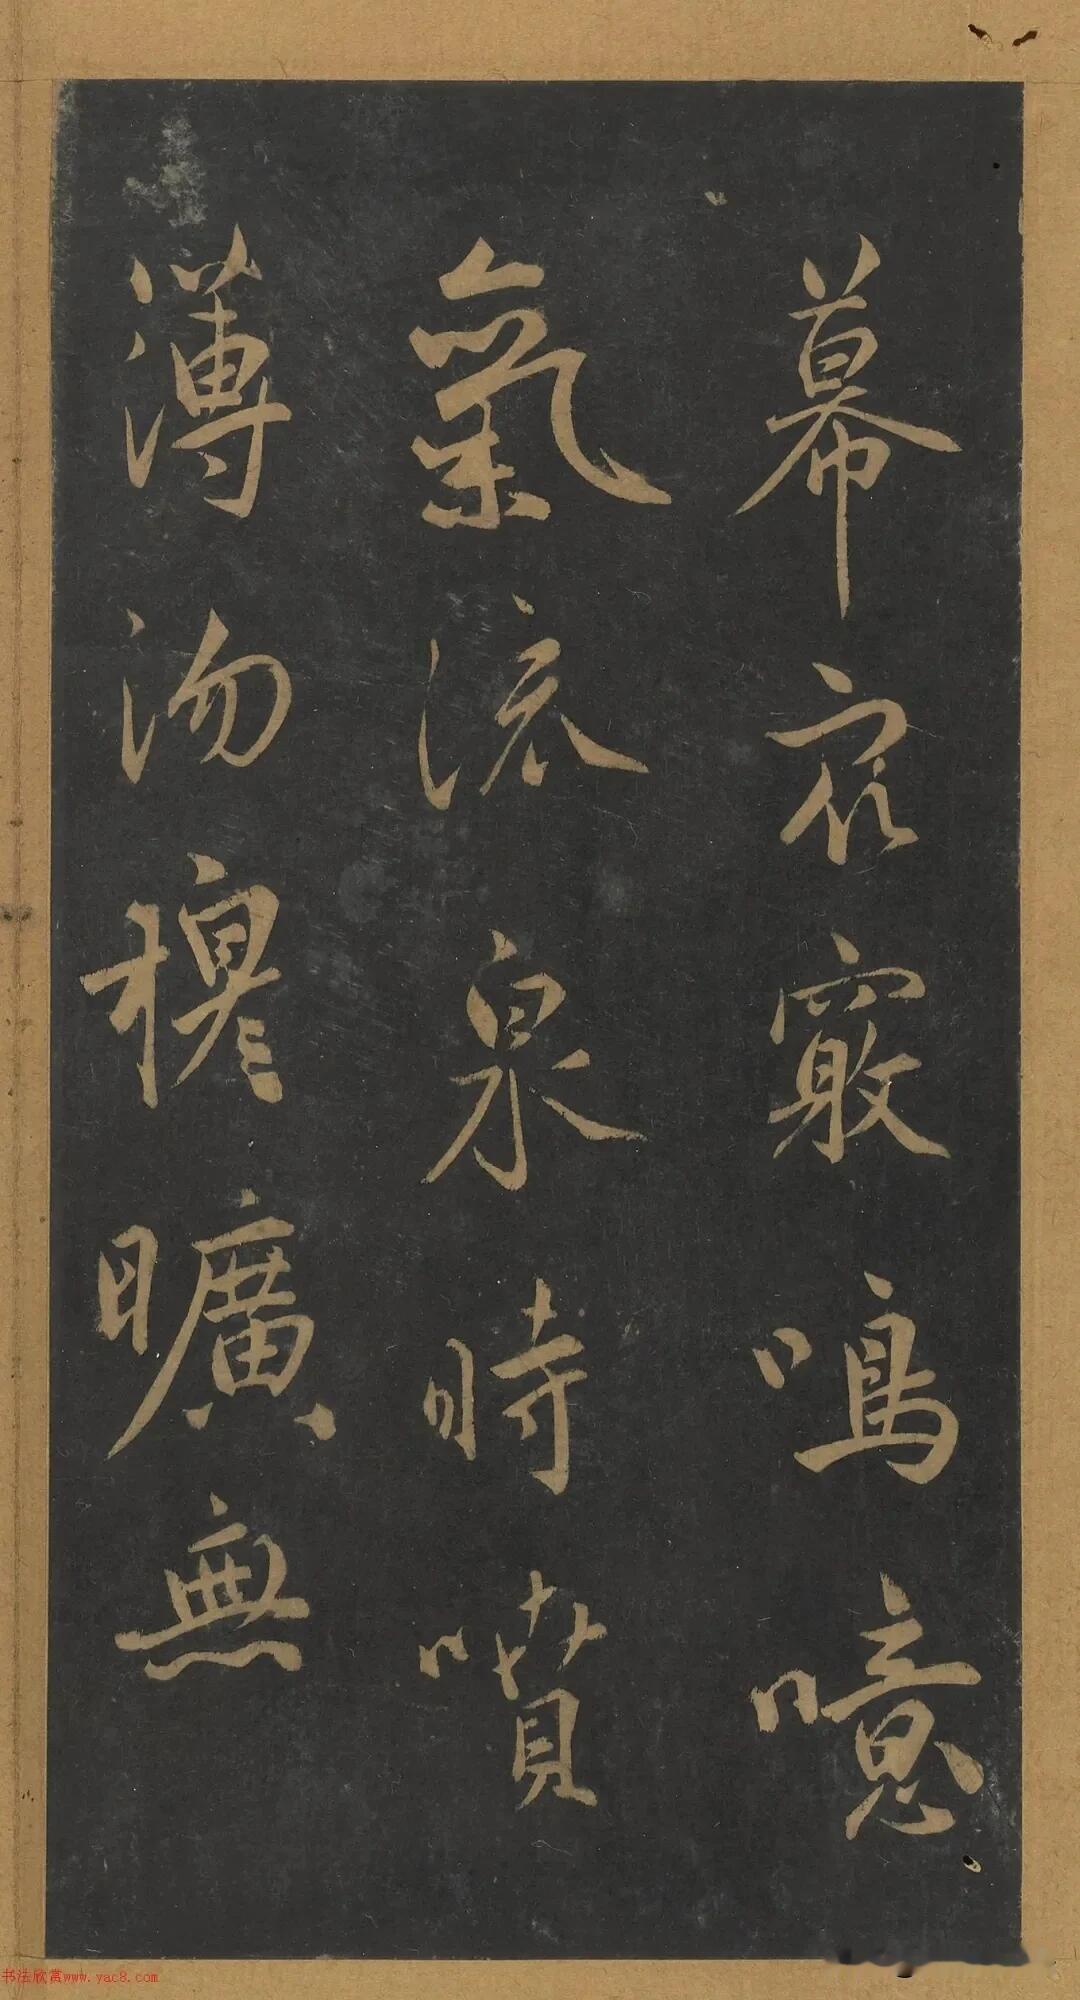 幕竅鳴噫
氣流泉時噴
薄沕穆曠無
书法欣赏www.yac8.com